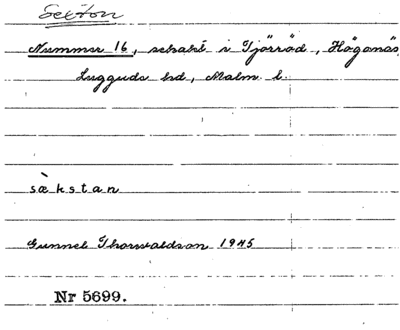 Sexton
Nummer 16, schakt i Tjörröd, Höganäs,
Luggude hd, Malm. l.
sὲkstan
Gunnel Thorwaldson 1945
Nr 5699.